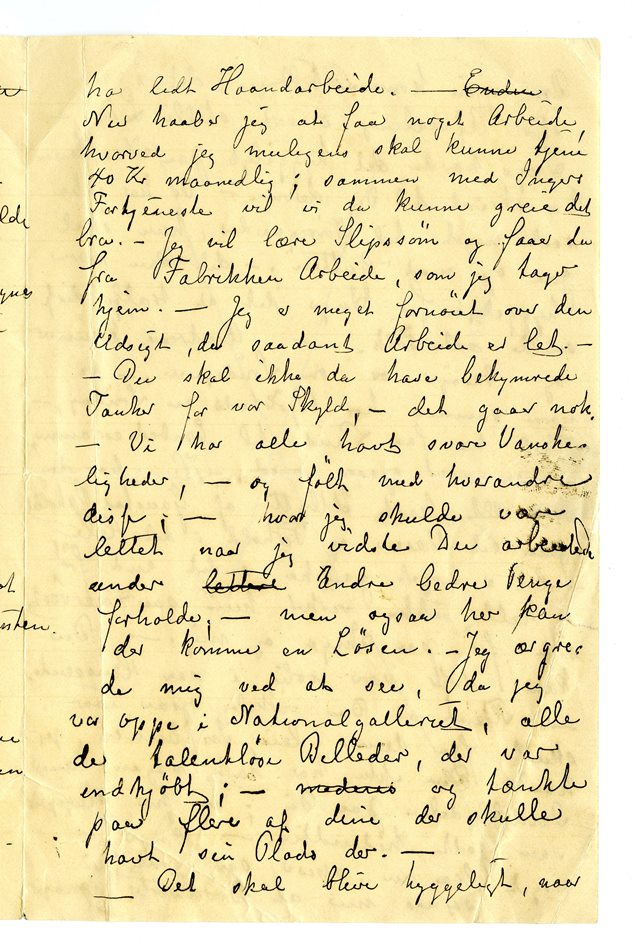 ha ledt Haandarbeide. — Endnu
Nu haaber jeg at faa noget Arbeide,
hvorved jeg muligens skal kunne tjene
40 Kr maanedlig; sammen med Ingers
Fortjeneste vil vi da kunne greie det
bra. – Jeg vil lære Slipssøm og faar da
fra Fabrikken Arbeide, som jeg tager
hjem. — Jeg er meget fornøiet over den
Udsigt, da saadant Arbeide er let. –
– Du skal ikke da have bekymrede
Tanker for vor Skyld, – det gaar nok.
– Vi har alle havt svare Vanske-
ligheder, – og følt med hverandre
disp; – hvor jeg skulde være
lettet naar jeg vidste Du arbeidede
under lettere andre bedre Penge
forholde; – men ogsaa her kan
der komme en Løsen. – Jeg ærgre-
de mig ved at see, da jeg
var oppe i Nationalgalleriet, alle
de talentløse Billeder, der var
indkjøbt; – medens og tænkte
paa flere af dine der skulle
havt sin Plads der. —
— Det skal blive hyggeligt, naar
lde
ynes
at
nten.
ne
en